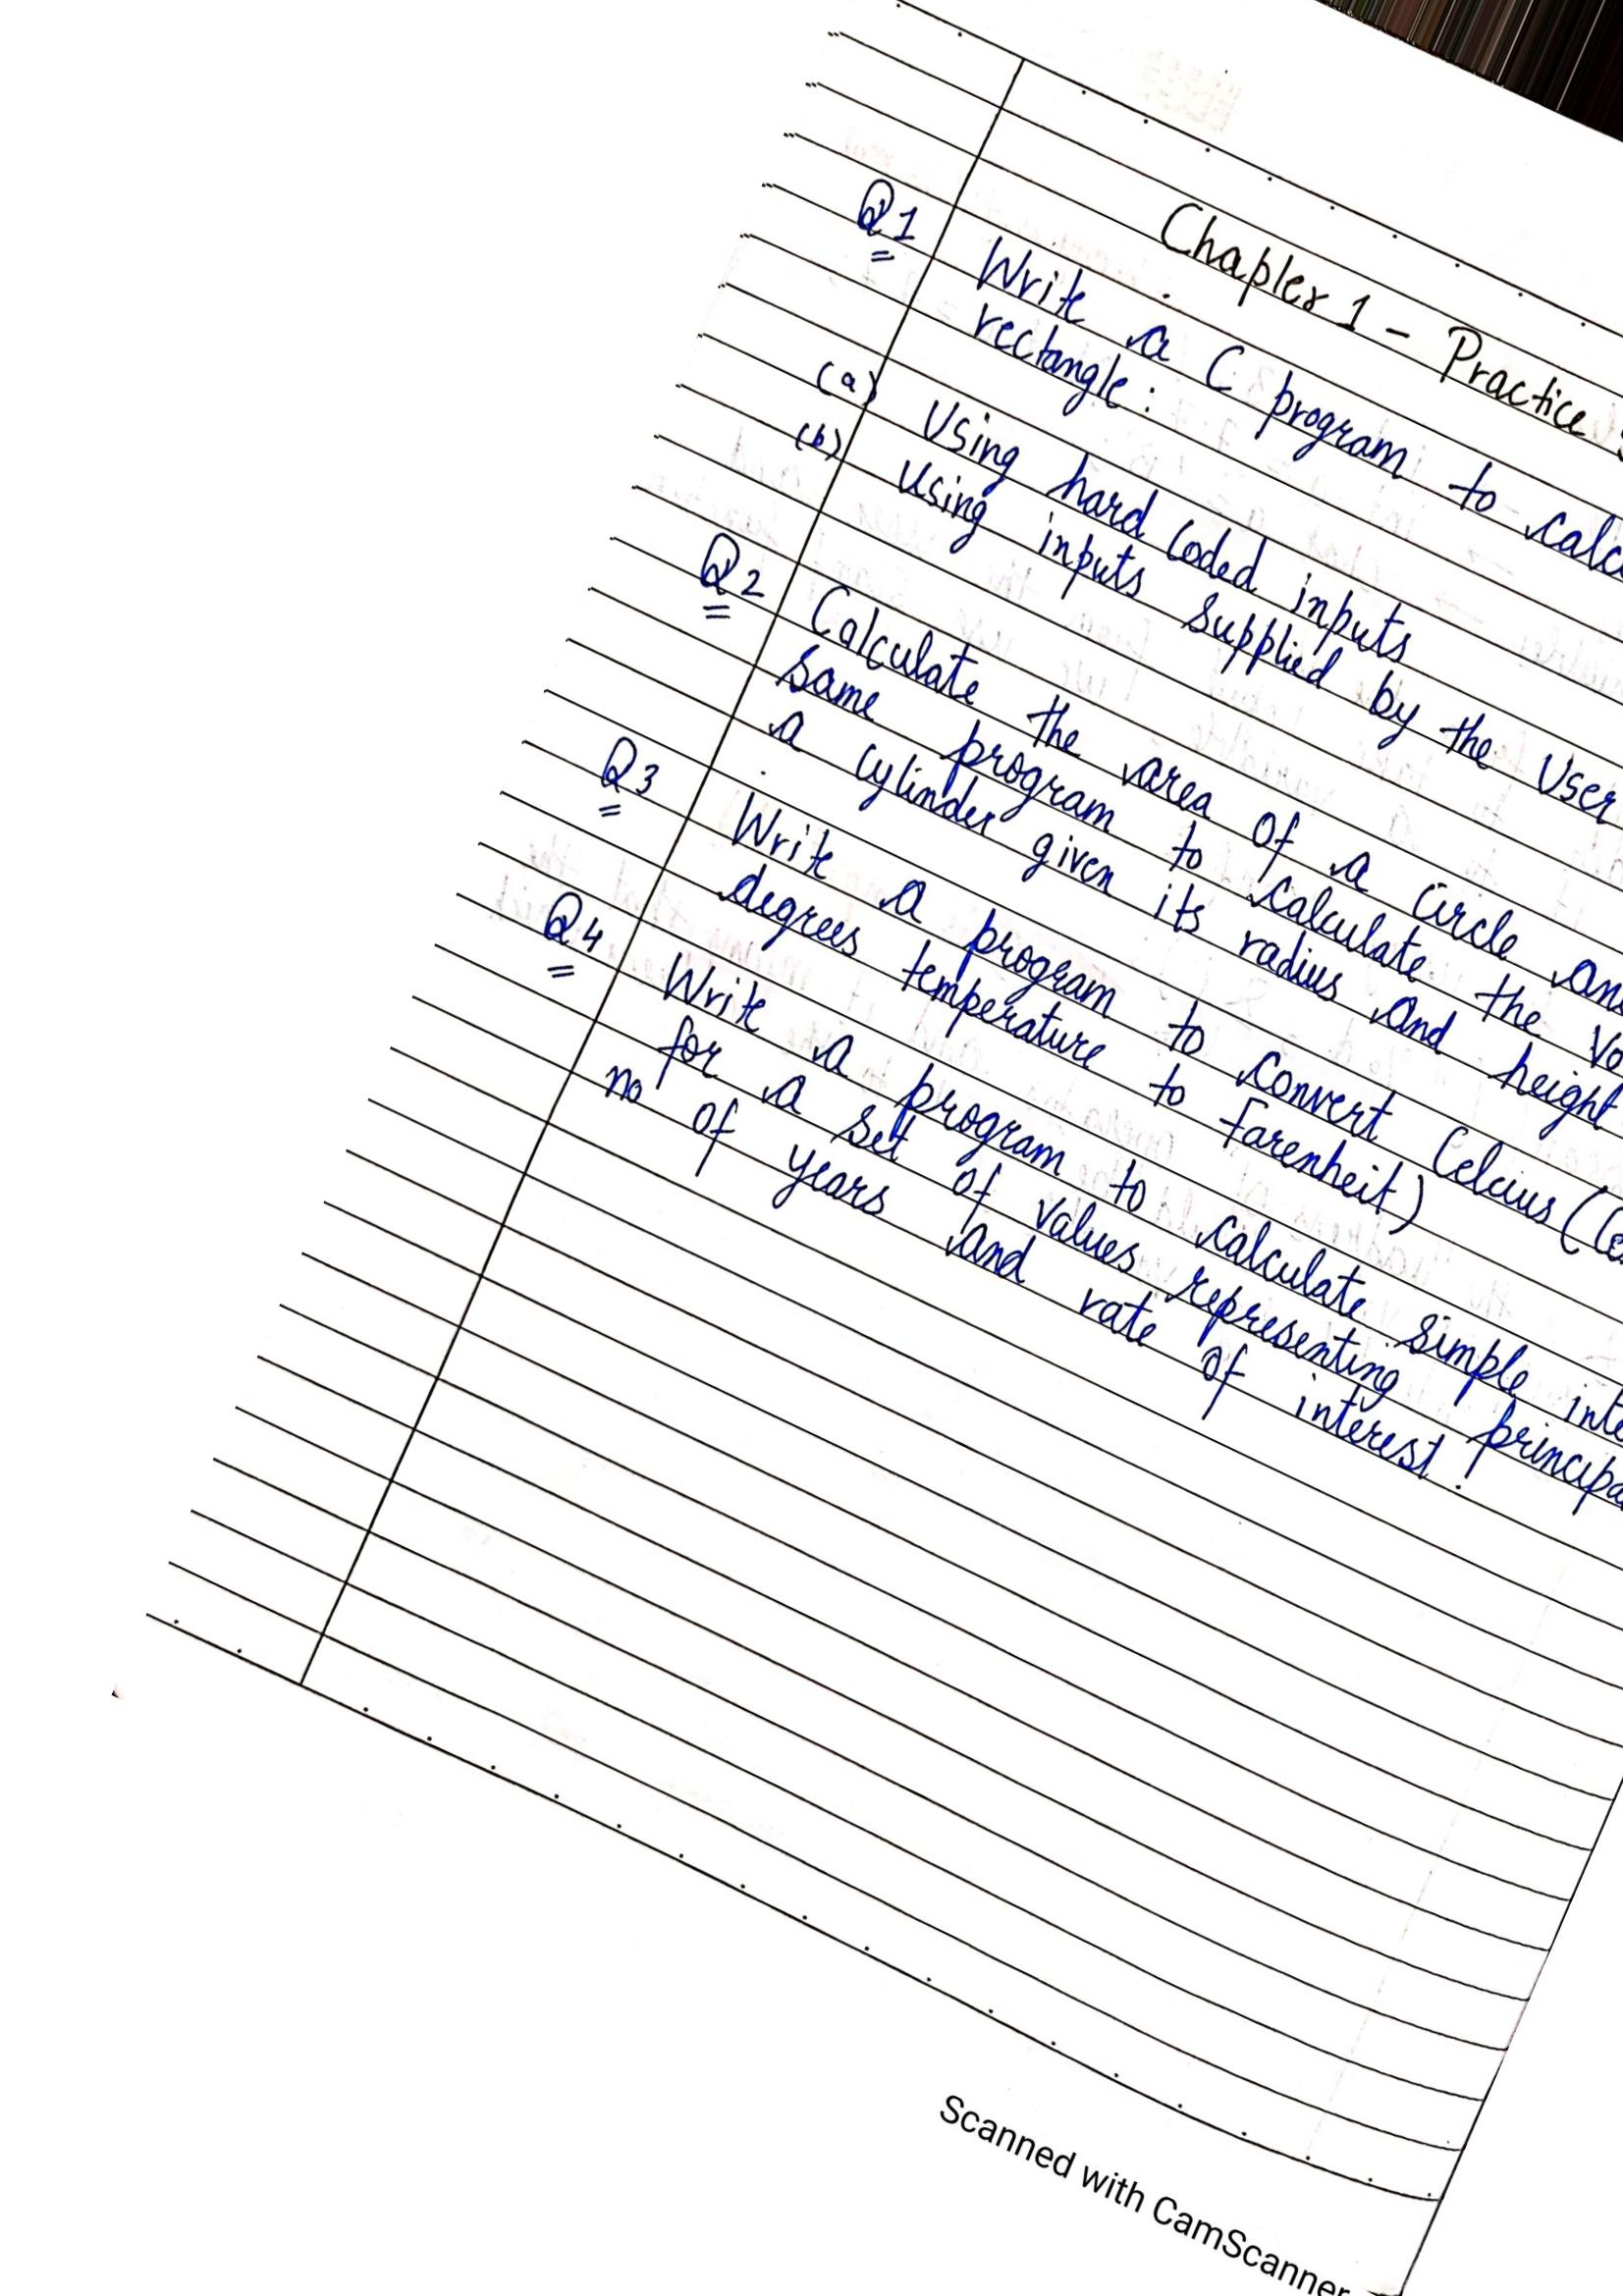 Chapter 1 - Practice
Q1 Write a C program to calc
rectangle:
(a) Using hard coded inputs
(b) Using inputs supplied by the User
Q2 Calculate the area of a Circle an
same program to Calculate the Vo
a cylinder given its radius and height
Q3 Write a program to convert Celcius (Ce
degrees temperature to Farenheit)
Q4 Write a program to calculate simple inte
for a set of values representing principa
no of years and rate of interest.
Scanned with CamScanner